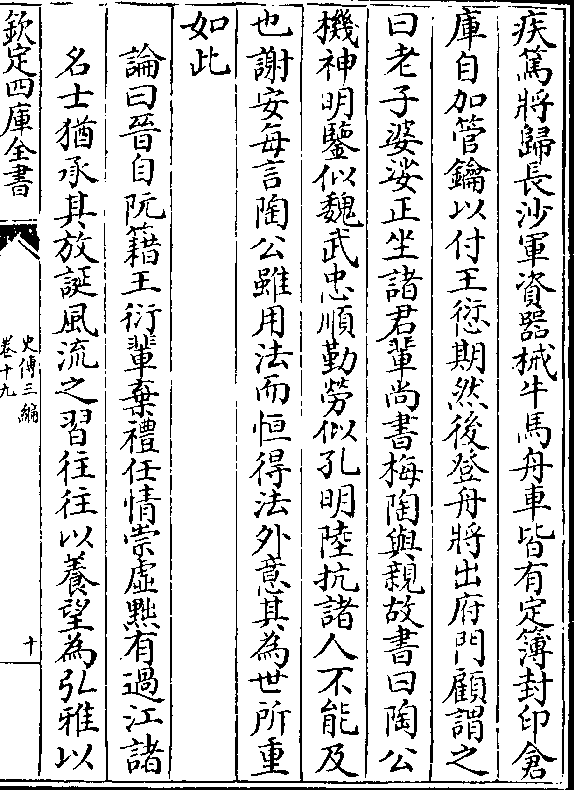 疾篤將歸長沙軍資器械牛馬舟車皆有定簿封印倉
庫自加管鑰以付王愆期然後登舟將出府門顧謂之
曰老子婆娑正坐諸君輩尚書梅陶與親故書曰陶公
機神明鑒似魏武忠順勤勞似孔明陸抗諸人不能及
也謝安每言陶公雖用法而恒得法外意其為世所重
如此
論曰晉自阮籍王衍輩棄禮任情崇虛黜有過江諸
名士猶承其放誕風流之習往往以養望為弘雅以
欽定四庫全書
史傳三編
卷十九
十